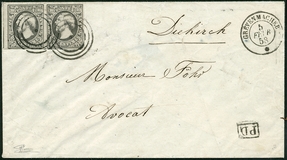 GREVENMACHER
5
FEVR
53
Diekirch
Monsieur Fohr
Avocat
PD